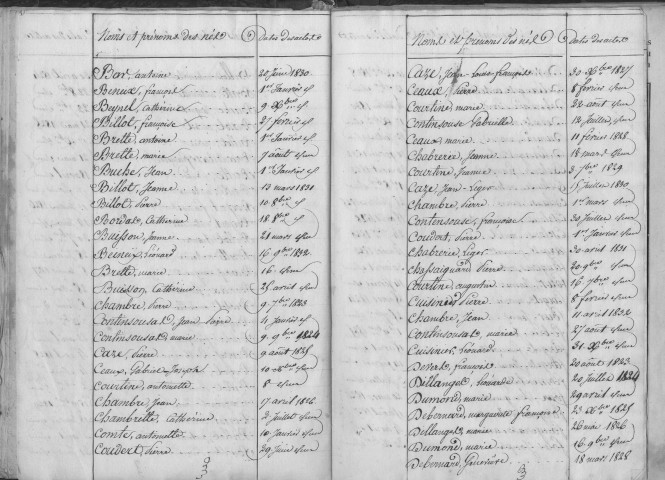 Noms et prénoms des nés Dates des actes
Bor, antoine 20 Juin 1830
Beneux, françois 1er Janvier
Beynel, Catherine 9 Xbre
Billot, françoise 27 fevrier
Brette, antoine 1er Janvier
Brette, marie 7 août
Buche, Jean 1er Janvier
Billot, Jeanne 13 mars 1831
Billot, Pierre 10 8bre
Bordas, Catherine 18 8bre
Buisson, Jeanne 21 mars
Beneix, Léonard 16 9bre 1832
Brette, marie 16
Buisson, Catherine 25 avril
Chambre, Pierre 9 7bre 1823
Continsousas, Jean Pierre 11 Janvier
Continsousas, marie 9 9bre 1824
Caze, Pierre 9 août 1825
Ceaux, Gabriel Joseph 10
Courtine, antoinette 8
Chambre, Jean 17 avril 1826
Chambrette, Catherine 2 Juillet
Comte, antoinette 10 Janvier
Coudert, Pierre 29 Juin
Noms et prenoms des nés Dates des actes
Caze, Jean Louis françois 30 Xbre 1827
Ceaux, Pierre 8 fevrier
Courtine, marie 22 août
Continsouse, Gabrielle 12 Juillet
Ceaux, marie 11 fevrier 1828
Chabrerie, Jeanne 18 mars
Courtine, Jeanne 3 7bre 1829
Caze, Jean Léger 15 Juillet 1830
Chambre, Pierre 1er mars
Continsouse, françoise 30 Juillet
Coudert, Pierre 1er Janvier
Chabrerie, Léger 30 avril 1831
Chassaignard, Pierre 20 9bre
Courtine, augustin 16 7bre
Cuisinier, Pierre 8 fevrier
Chambre, Jean 11 avril 1832
Continsousas, marie 27 août
Cuisinier, Léonard 31 Xbre
Devert, françois 20 août 1823
Dellangel, Léonard 20 Juillet 1824
Dumond, marie 29 avril
Debernard, marguerite françoise 23 Xbre 1825
Dellangel, marie 26 mai 1826
Dumond, marie 16 9bre
Debernard, Geneviève 18 mars 1828